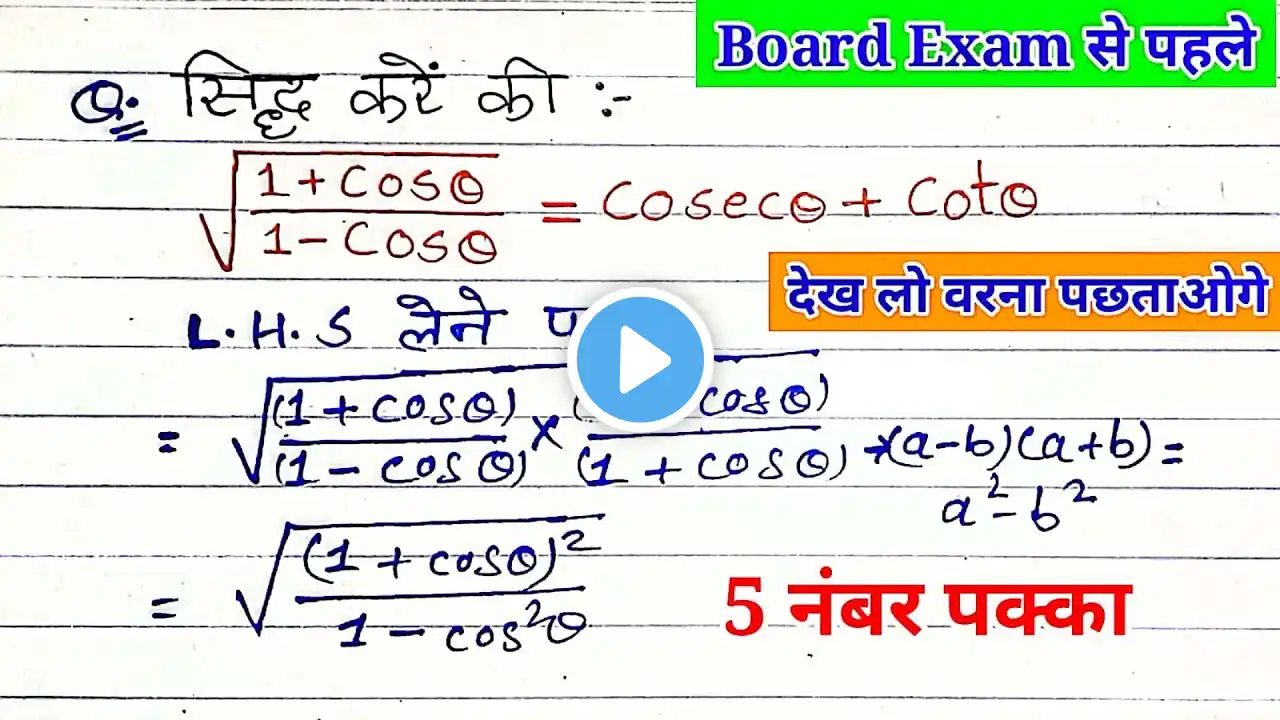 Board Exam से पहले
Q. सिद्ध करें की :-
√((1 + cosθ)/(1 - cosθ)) = cosecθ + cotθ
देख लो वरना पछताओगे
L.H.S लेने
= √((1 + cosθ)/(1 - cosθ) × cosθ)/(1 + cosθ) → (a-b)(a+b) =
a² - b²
= √((1 + cosθ)²/(1 - cos²θ))
5 नंबर पक्का